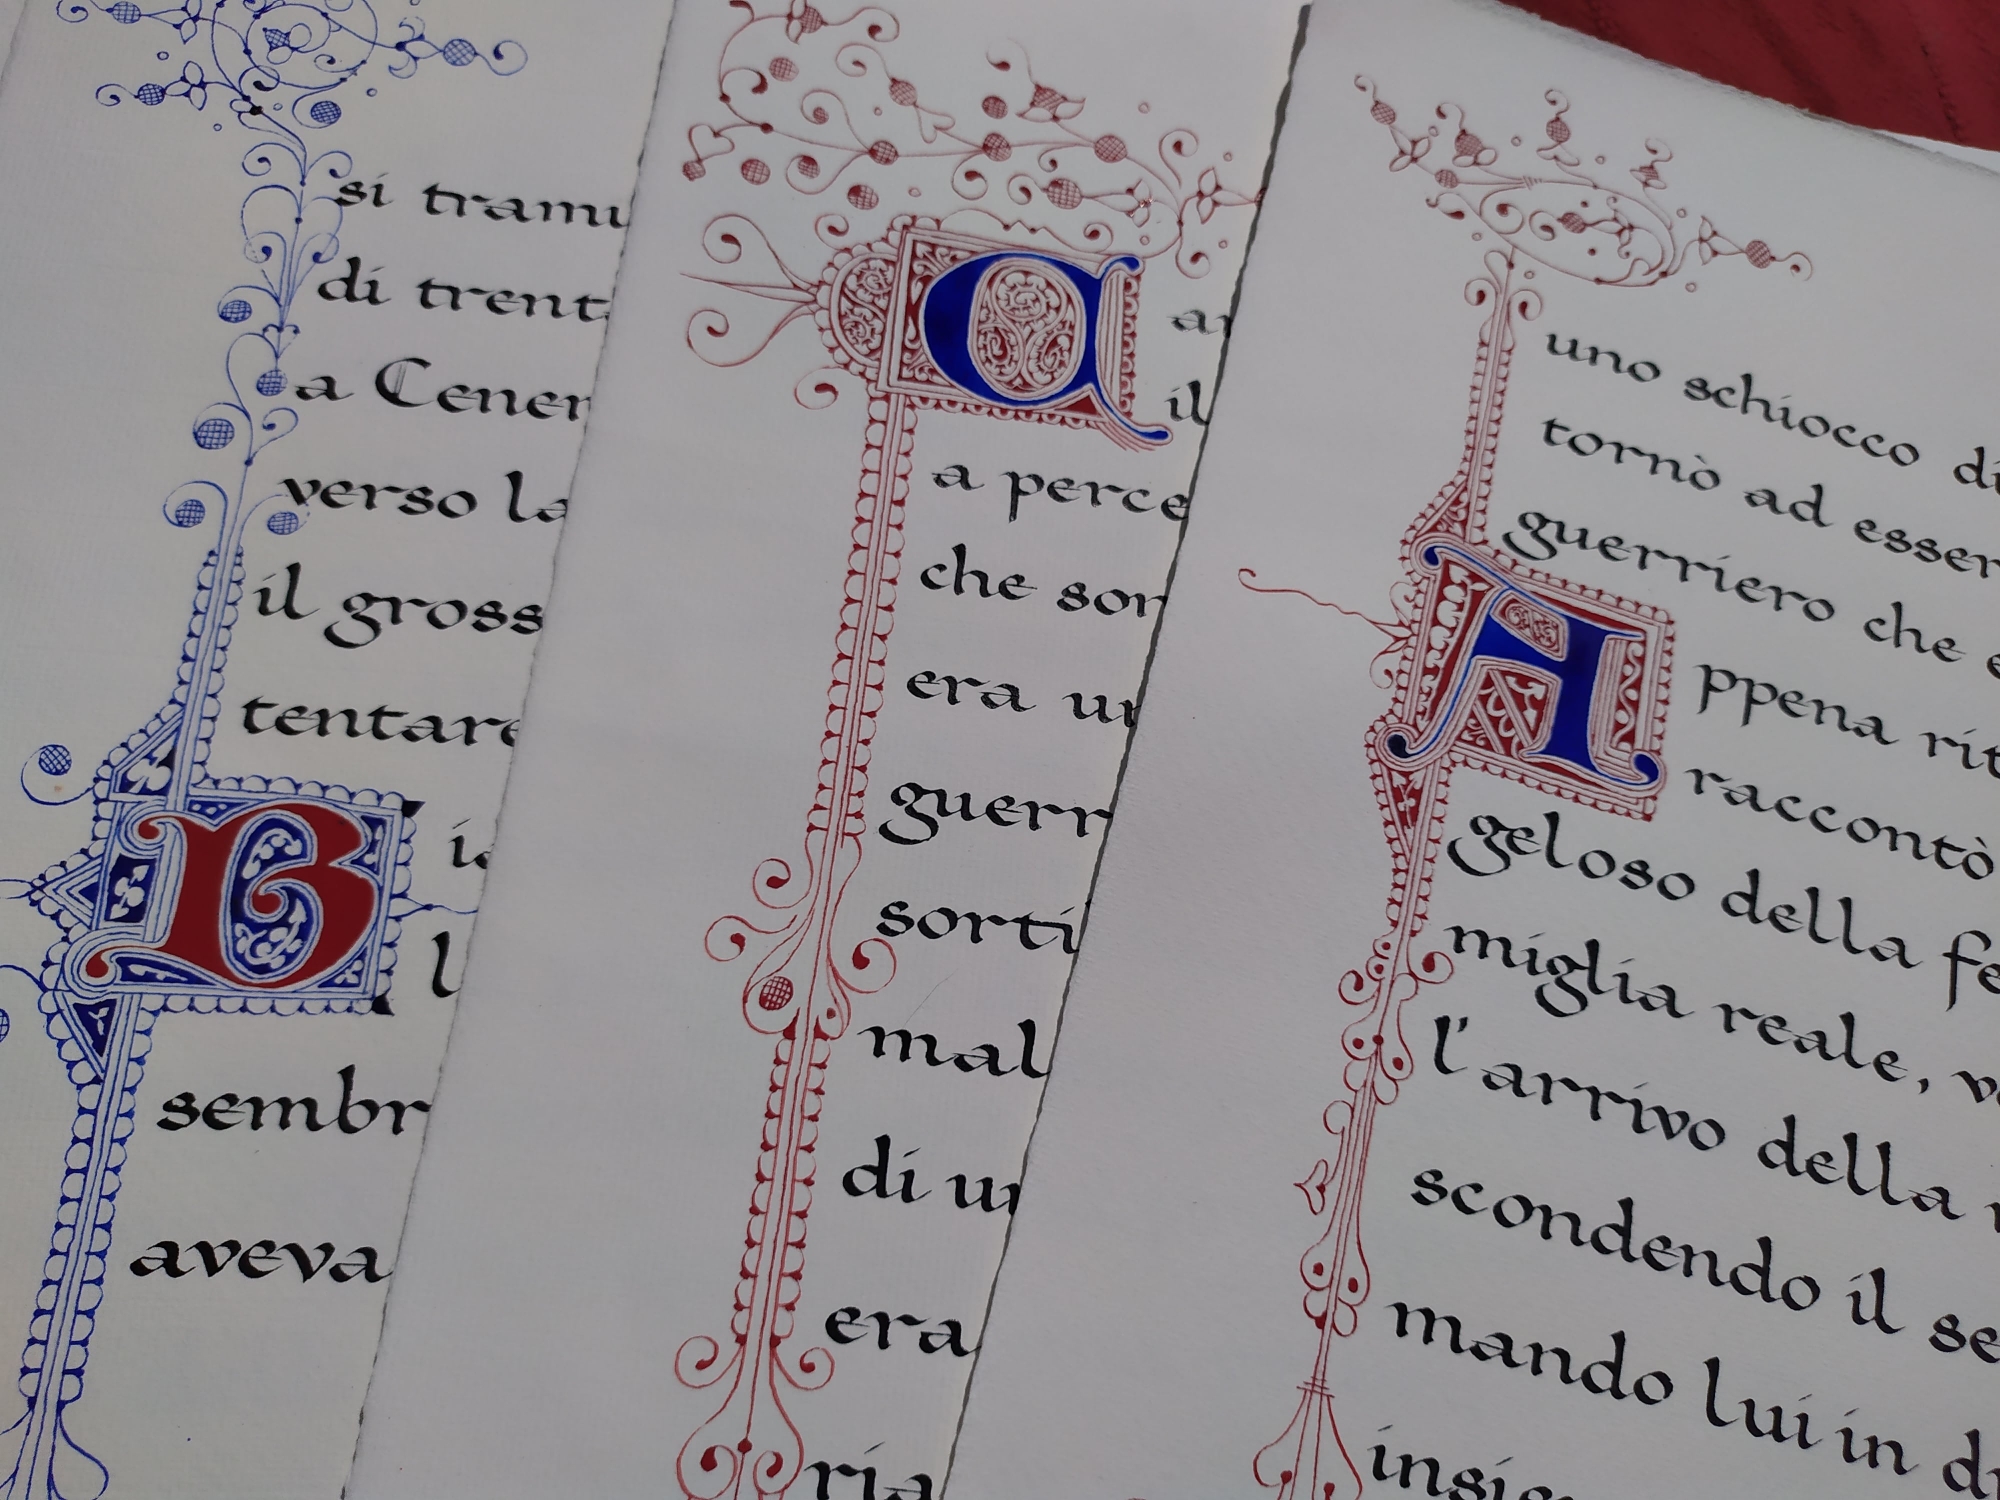 si tramu
di trent
a Cener
verso la
il gross
tentare
B
l
sembr
aveva
A
il
a perce
che sor
era un
guerr
sorti
mal
di un
era
ria
uno schiocco di
tornò ad esser
guerriero che e
Appena rit
raccontò
geloso della fe
miglia reale, v
l'arrivo della
scondendo il se
mando lui in d
insie